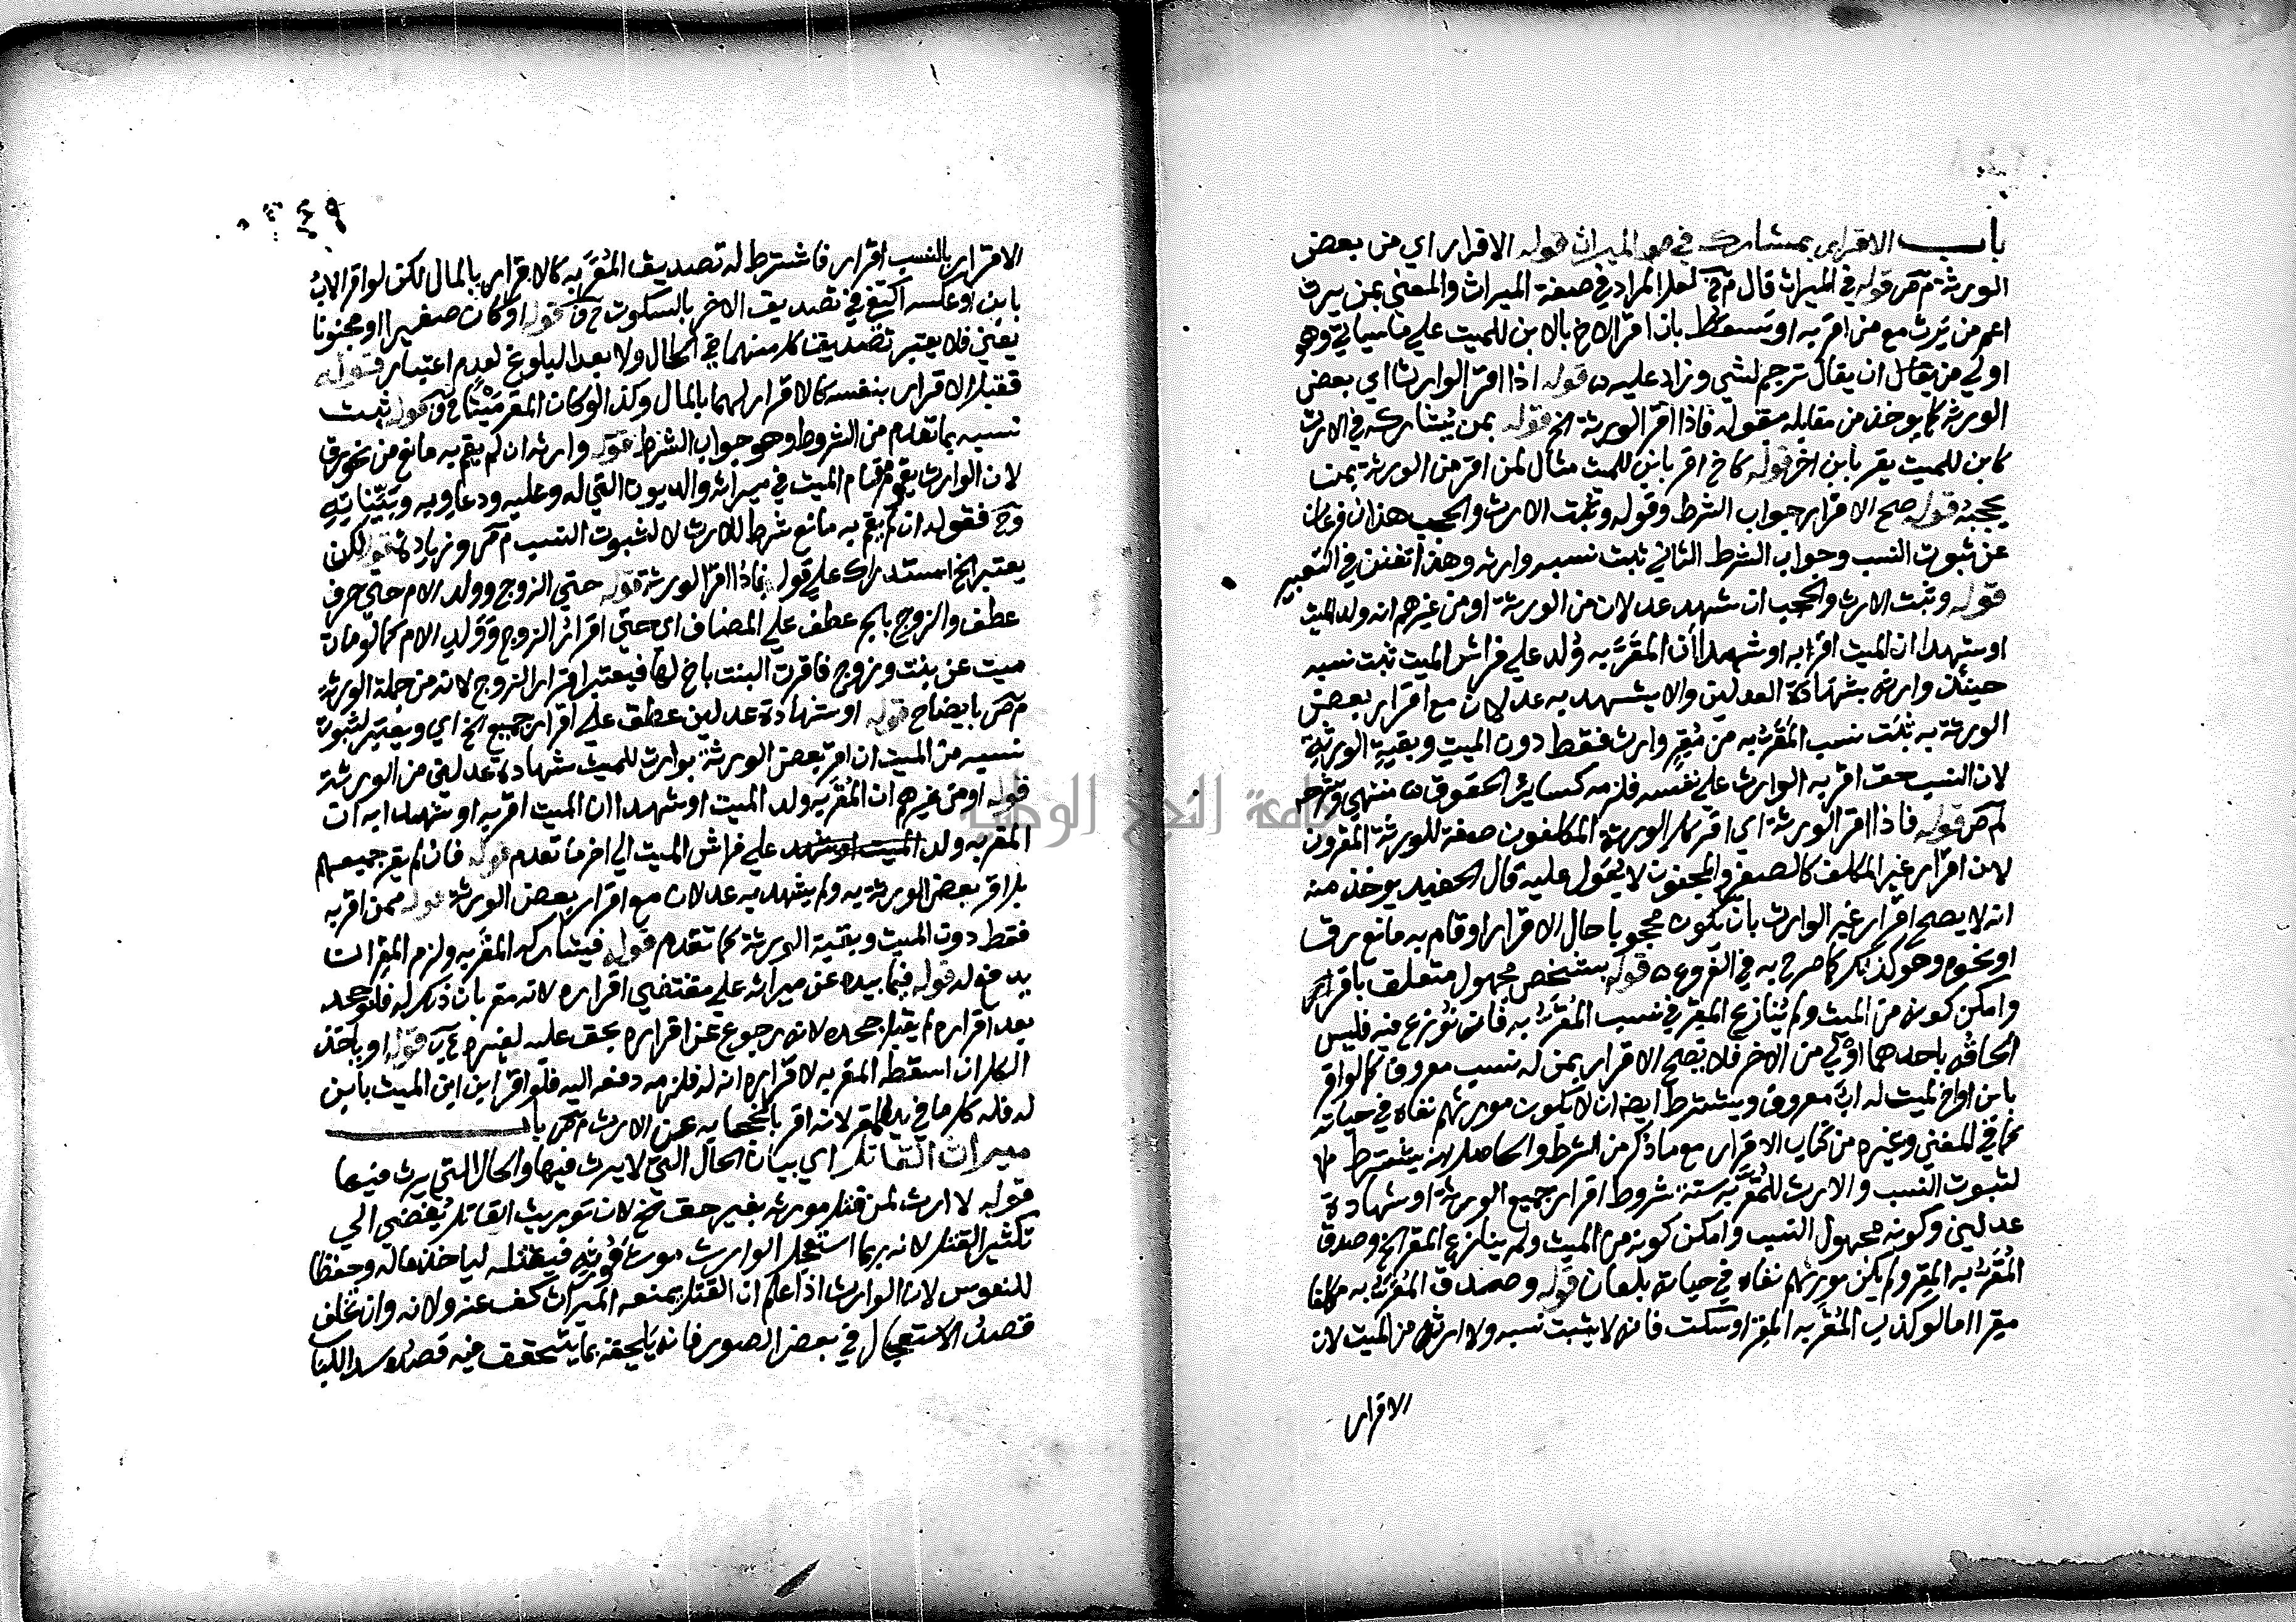 باب الاقرار بمشارك في الميراث قوله الاقرار اي من بعض
الورثة م ص قوله في الميراث قال م خ لعل المراد في صفة الميراث والمعنى بمن يرث
اعم من يرث مع من اقر به او يسقط بان اقر الاخ بالابن للميت على ما سياتي وهو
اولى من ان يقال ترجم لشي وزاد عليه قوله اذا اقر الوارث اي بعض
الورثة كما يوخذ من مقابله بقوله فاذا اقر الورثة الخ قوله بمن يشاركه في الارث
كابن للميت يقر بابن اخر قوله كاخ اقر بابن للميت مثال لمن اقر من الورثة بمن
يحجبه قوله صح الاقرار جواب الشرط وقوله وثبت الارث والحجب هذان فرعان
عن ثبوت النسب وجواب الشرط الثاني ثبت نسبه وارثه وهذا تفنن في التعبير
قوله وثبت الارث والحجب ان شهد عدلان من الورثة او من غيرهم انه ولد الميت
او شهدا ان الميت اقر به او شهدا ان المقر به ولد على فراش الميت ثبت نسبه
حينئذ وارثه بشهادة العدلين والا يشهد به عدلان مع اقرار بعض
الورثة به ثبت نسب المقر به من مقر وارث فقط دون الميت وبقية الورثة
لان النسب حق اقر به الوارث على نفسه فلزمه كساير الحقوق منتهى وشرحه
لم ص قوله فاذا اقر الورثة اي اقر كل الورثة المكلفون صفة للورثة المقرون
لان اقرار غير المكلف كالصغير والمجنون لا يعول عليه قال الحفيد يوخذ منه
انه لا يصح اقرار غير الوارث بان يكون محجوبا حال الاقرار او قام به مانع رق
او نحوه وهو كذلك كما صرح به في الفروع قوله بشخص مجهول متعلق باقرار
وامكن كونه من الميت ولم ينازع المقر في نسب المقر به فان نوزع فيه فليس
الحاقه باحدهما اولى من الاخر فلا يصح الاقرار بمن له نسب معروف كما لو اقر
بابن او اخ لميت له اب معروف ويشترط ايضا ان لا يكون مورثهم نفاه في حياته
كما في المغني وغيره من كتاب الاقرار مع ما ذكر من الشرط والحاصل انه يشترط
لثبوت النسب والارث للمقر به ستة شروط اقرار جميع الورثة او شهادة
عدلين وكونه مجهول النسب وامكن كونه من الميت ولم ينازع المقر الخ وصدق
المقر به المقر ولم يكن مورثهم نفاه في حياته بلعان قوله وصدق المقر به مكلفا
مقرا اما لو كذب المقر به المقر او سكت فانه لا يثبت نسبه ولا ارثه من الميت لان
الاقرار
٤٩
الاقرار بالنسب اقرار فاشترط له تصديق المقر به كالاقرار بالمال لكن لو اقر الاب
بابن او عكسه اكتفي في تصديق الاخر بالسكوت قوله او كان صغيرا او مجنونا
يعني فلا يعتبر تصديق كل منهما في الحال ولا بعد البلوغ لعدم اعتبار قوله
فقبل الاقرار بنفسه كالاقرار لهما بالمال وكذا لو كان المقر ميتا قوله ثبت
نسبه بما تقدم من الشروط وهو جواب الشرط قوله وارثه ان لم يقم به مانع من نحو رق
لان الوارث يقوم مقام الميت في ميراثه والديون التي له وعليه ودعاويه وبيناته
وح فقوله ان لم يقم به مانع شرط للارث لا لثبوت النسب م ص وزيادة قوله لكن
يعتبر الخ استدراك على قوله فاذا اقر الورثة قوله حتى الزوج وولد الام حتى حرف
عطف والزوج بالجر عطف على المضاف اي حتى اقرار الزوج وولد الام كما لو مات
ميت عن بنت وزوج فاقرت البنت باخ لها فيعتبر اقرار الزوج لانه من جملة الورثة
م ص بايضاح قوله او شهادة عدلين عطف على اقرار جميع الخ اي ويعتبر لثبوت
نسبه من الميت ان اقر بعض الورثة بوارث للميت شهادة عدلين من الورثة
قوله او من غيرهم ان المقر به ولد الميت او شهدا ان الميت اقر به او شهدا به ان
المقر به ولد الميت او شهد على فراش الميت الى اخر ما تقدم قوله فان لم يقر جميعهم
بل اقر بعض الورثة به ولم يشهد به عدلان مع اقرار بعض الورثة قوله ممن اقر به
فقط دون الميت وبقية الورثة كما تقدم قوله فيشاركه المقر به ولزم المقر ان
يدفع له قوله فيما بيده عن ميراثه على مقتضى اقراره لانه مقر بان ذكر له فلو جحد
بعد اقراره لم يقبل جحده لانه رجوع عن اقراره بحق عليه لغيره قوله او ياخذ
الكل ان اسقطه المقر به لاقراره انه له فلزمه دفعه اليه فلو اقر ابن ابن الميت بابن
له فله كل ما في يد المقر لانه اقر بانحجابه عن الارث م ص باب
ميراث القاتل اي بيان الحال التي لا يرث فيها والحال التي يرث فيها
قوله لا ارث لمن قتل مورثه بغير حق الخ لان توريث القاتل يفضي الى
تكثير القتل لانه ربما استعجل الوارث موت مورثه فيقتله لياخذ ماله وحفظا
للنفوس لان الوارث اذا علم ان القتل يمنعه الميراث كف عنه ولانه وان تخلف
قصد الاستعجال في بعض الصور فانه يلحقه بما يتحقق فيه قصده سدا للباب
جامعة النجاح الوطنية